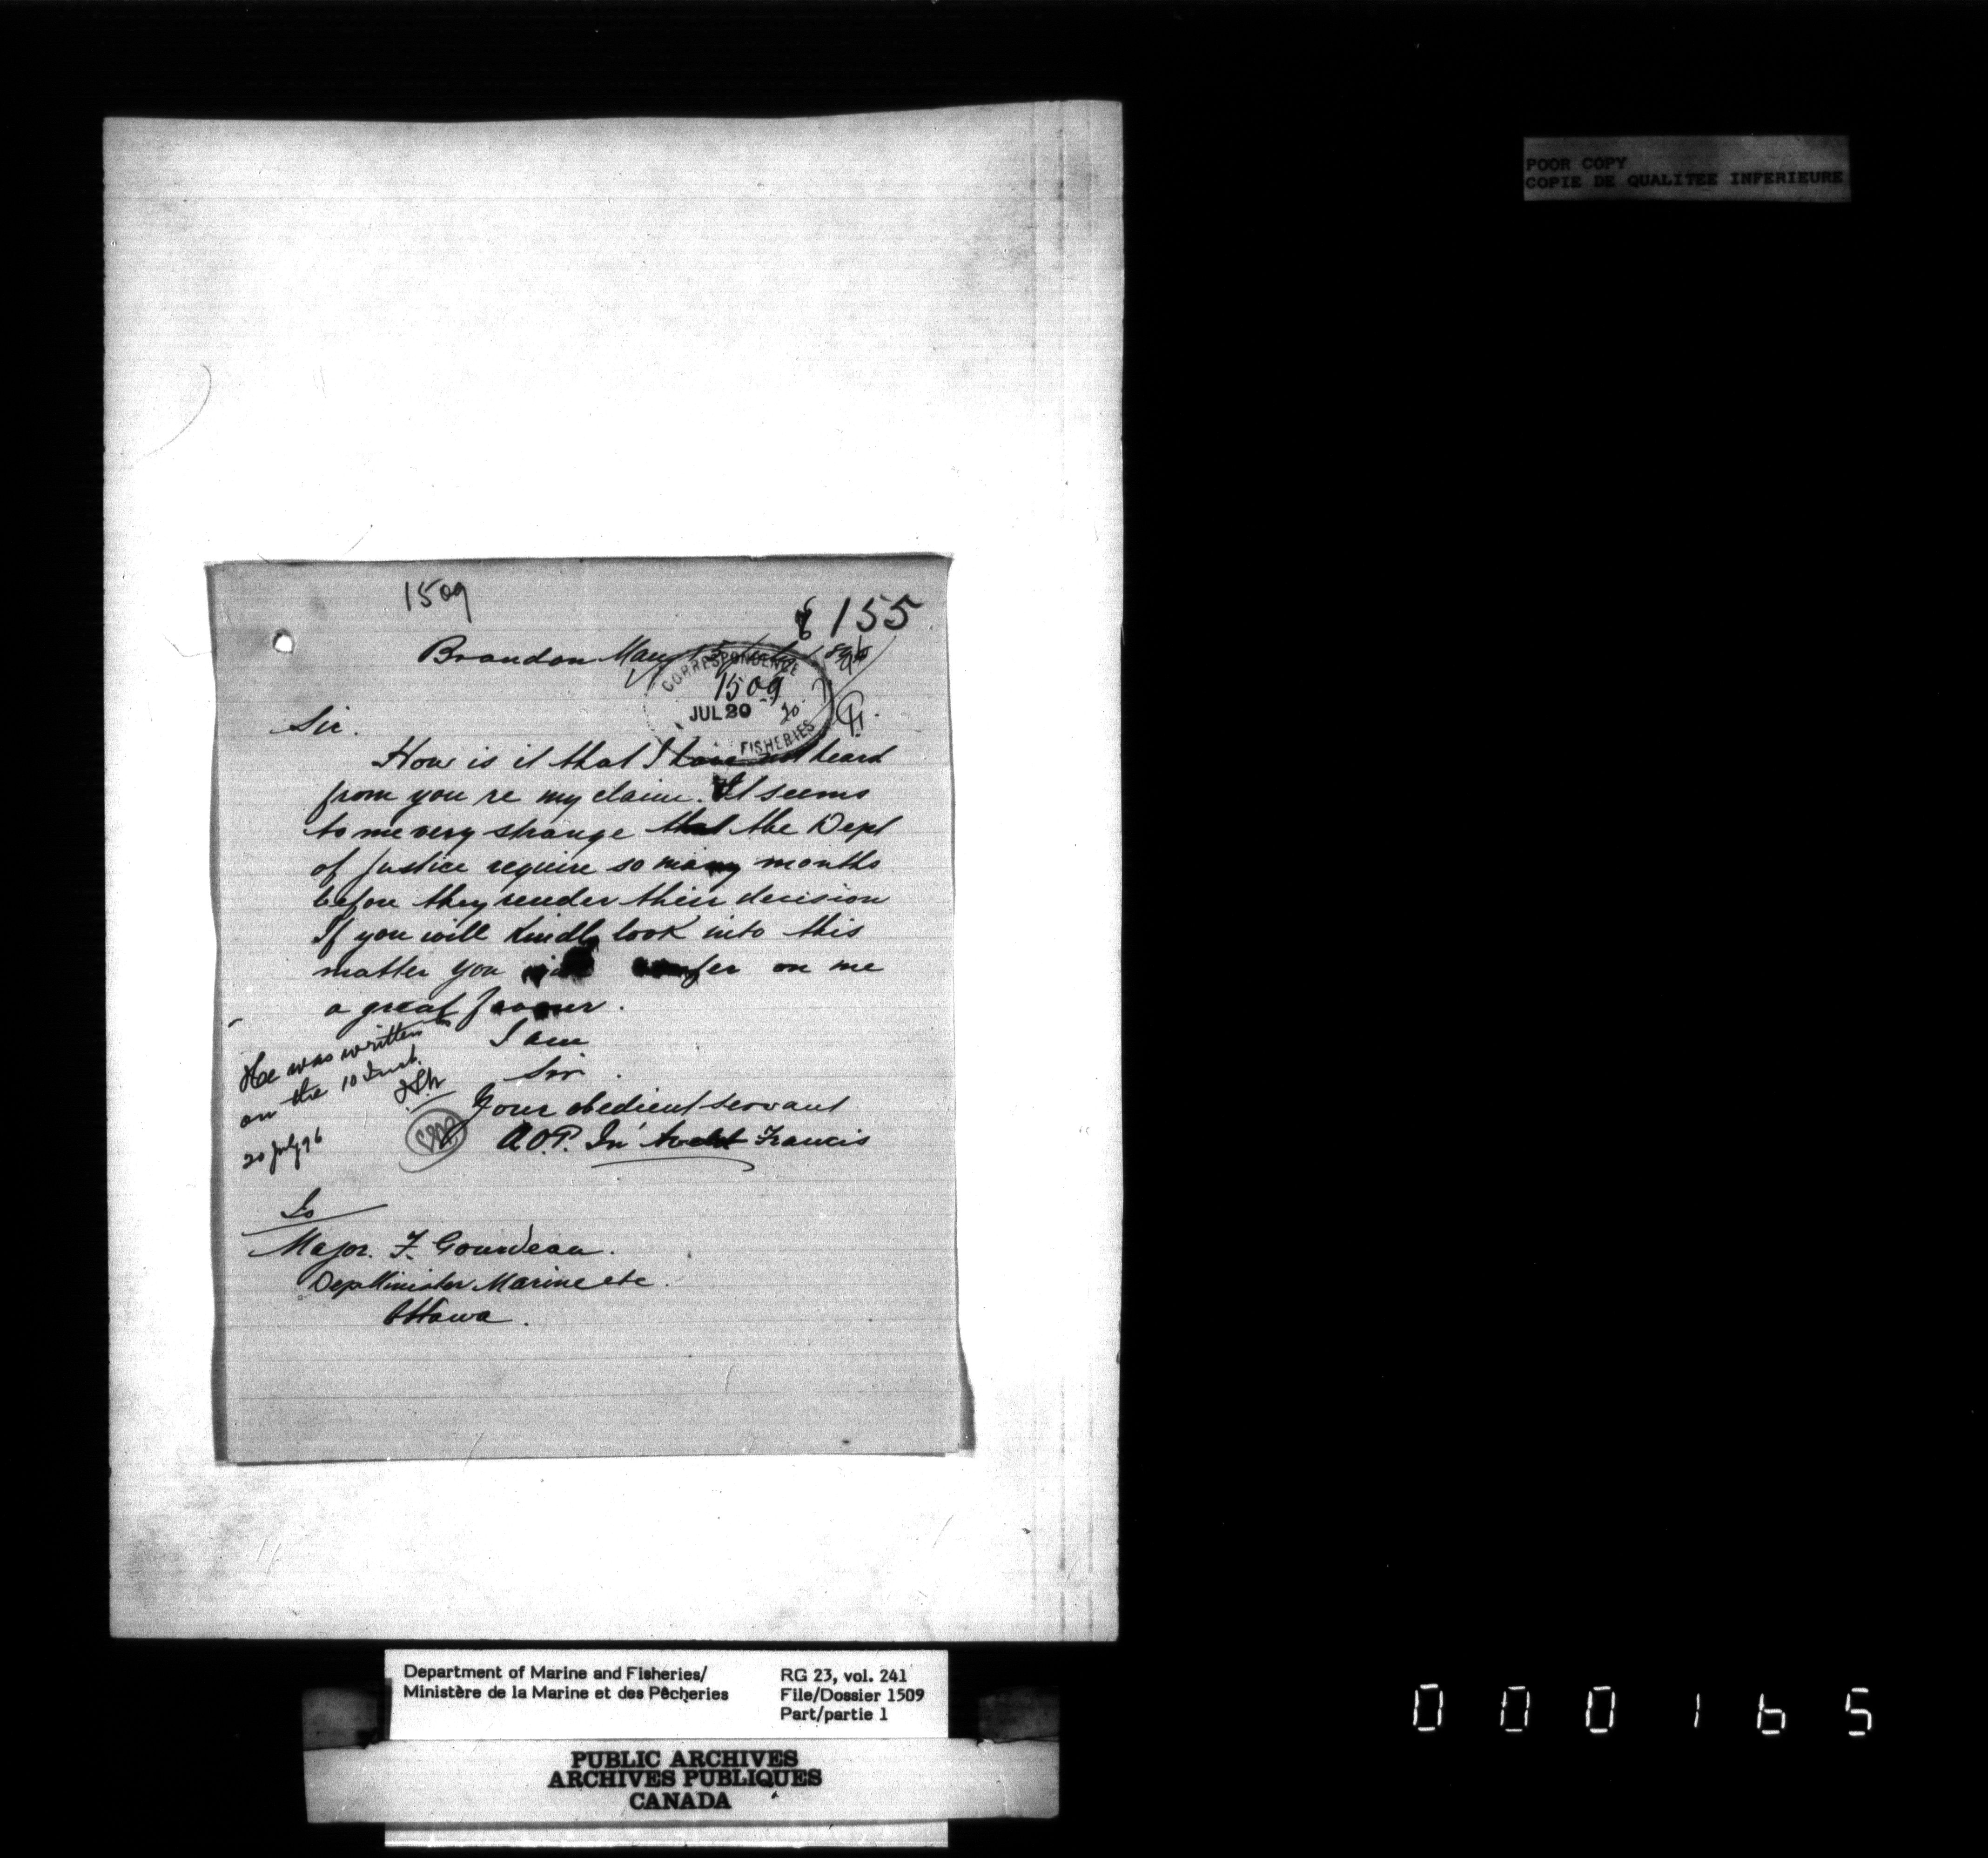 POOR COPY
COPIE DE QUALITEE INFERIEURE
1509
155
Brandon Man 15 July 1896
CORRESPONDENCE
1509
JUL 20
FISHERIES
Sir.
How is it that I have not heard
from you re my claim. It seems
to me very strange that the Dept
of Justice require so many months
before they render their decision
If you will kindly look into this
matter you will confer on me
a great favour.
I am
Sir.
Your obedient servant
A.O.P. Francis
He was written to
on the 10 Inst.
20 July 96
To
Major. F. Gourdeau.
Dep Minister Marine etc.
Ottawa.
Department of Marine and Fisheries/
Ministère de la Marine et des Pêcheries
RG 23, vol. 241
File/Dossier 1509
Part/partie 1
PUBLIC ARCHIVES
ARCHIVES PUBLIQUES
CANADA
000165